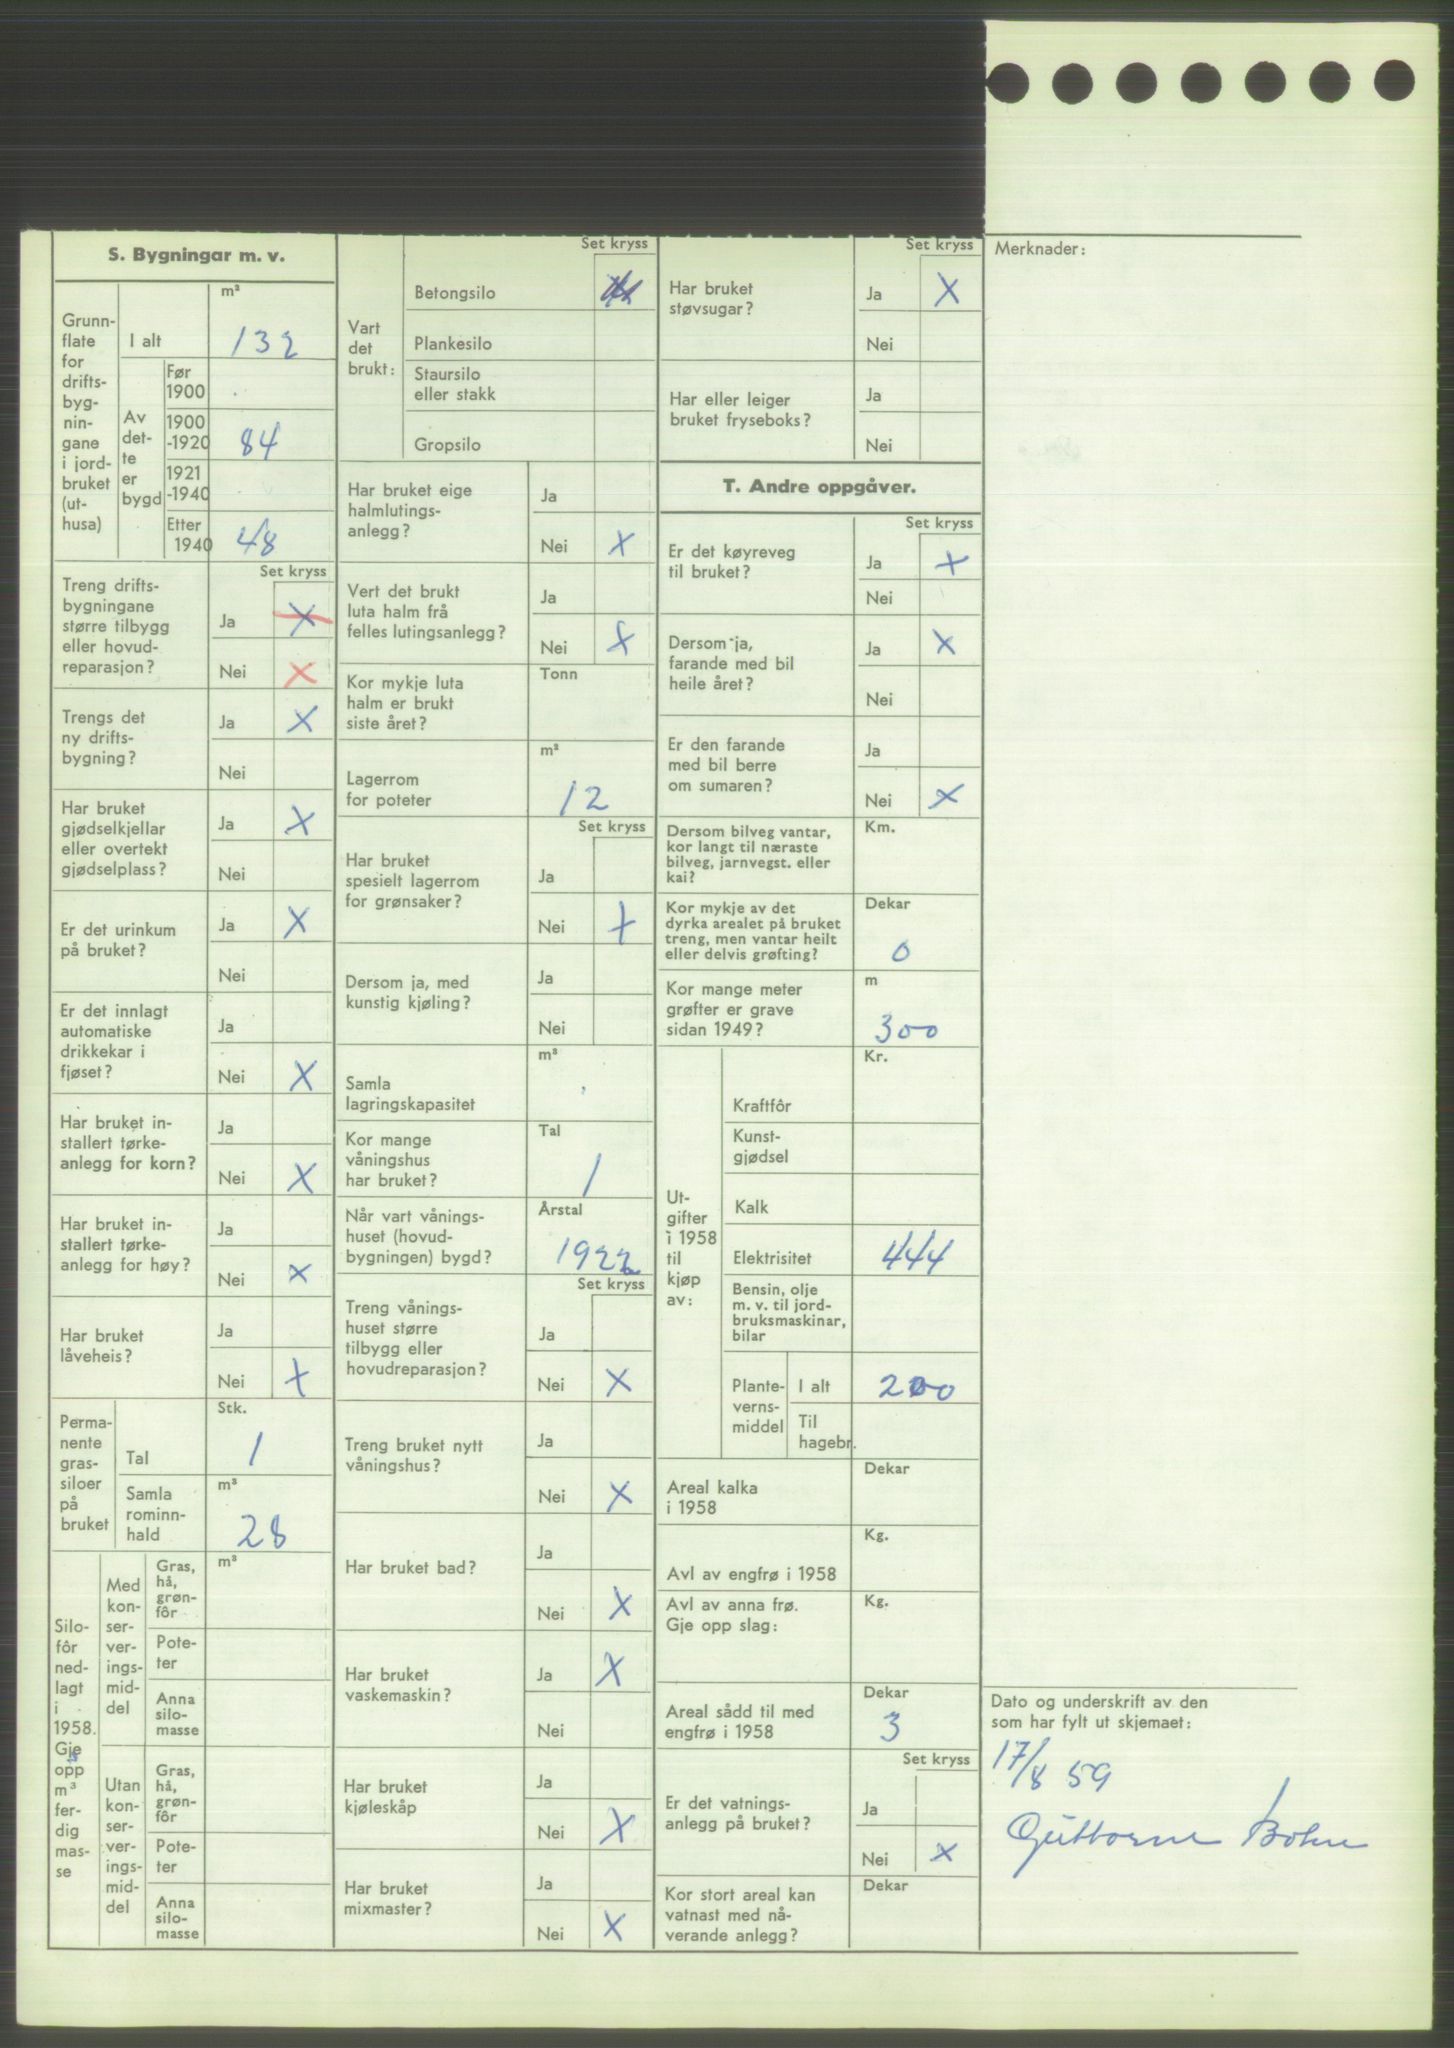 S. Bygningar m. v.
Grunn-
flate
for
drifts-
byg-
nin-
gane
i jord-
bruket
(ut-
husa)
I alt
m²
132
Av
det-
te
er
bygd
Før
1900
1900
-1920
84
1921
-1940
Etter
1940
48
Set kryss
Treng drifts-
bygningane
større tilbygg
eller hovud-
reparasjon?
Ja X
Nei X
Trengs det
ny drifts-
bygning?
Ja X
Nei
Har bruket
gjødselkjellar
eller overtekt
gjødselplass?
Ja X
Nei
Er det urinkum
på bruket?
Ja X
Nei
Er det innlagt
automatiske
drikkekar i
fjøset?
Ja
Nei X
Har bruket in-
stallert tørke-
anlegg for korn?
Ja
Nei X
Har bruket in-
stallert tørke-
anlegg for høy?
Ja
Nei X
Har bruket
låveheis?
Ja
Nei X
Perma-
nente
gras-
siloer
på
bruket
Tal
Stk.
1
Samla
rominn-
hald
m³
28
Silo-
fôr
ned-
lagt
i
1958.
Gje
opp
m³
fer-
dig
mas-
se
Med
kon-
ser-
ver-
ings-
mid-
del
Gras,
hå,
grøn-
fôr
m³
Pote-
ter
Anna
silo-
masse
Utan
kon-
ser-
ver-
ings-
mid-
del
Gras,
hå,
grøn-
fôr
Pote-
ter
Anna
silo-
masse
Vart
det
brukt:
Set kryss
Betongsilo
Plankesilo
Staursilo
eller stakk
Gropsilo
Har bruket eige
halmlutings-
anlegg?
Ja
Nei X
Vert det brukt
luta halm frå
felles lutingsanlegg?
Ja
Nei X
Kor mykje luta
halm er brukt
siste året?
Tonn
Lagerrom
for poteter
m³
12
Set kryss
Har bruket
spesielt lagerrom
for grønsaker?
Ja
Nei X
Dersom ja, med
kunstig kjøling?
Ja
Nei
Samla
lagringskapasitet
m³
Kor mange
våningshus
har bruket?
Tal
1
Når vart vånings-
huset (hovud-
bygningen) bygd?
Årstal
1922
Set kryss
Treng vånings-
huset større
tilbygg eller
hovudreparasjon?
Ja
Nei X
Treng bruket nytt
våningshus?
Ja
Nei X
Har bruket bad?
Ja
Nei X
Har bruket
vaskemaskin?
Ja X
Nei
Har bruket
kjøleskåp
Ja
Nei X
Har bruket
mixmaster?
Ja
Nei X
Set kryss
Har bruket
støvsugar?
Ja X
Nei
Har eller leiger
bruket fryseboks?
Ja
Nei
T. Andre oppgåver.
Set kryss
Er det køyreveg
til bruket?
Ja X
Nei
Dersom ja,
farande med bil
heile året?
Ja X
Nei
Er den farande
med bil berre
om sumaren?
Ja
Nei X
Dersom bilveg vantar,
kor langt til næraste
bilveg, jarnvegst. eller
kai?
Km.
Kor mykje av det
dyrka arealet på bruket
treng, men vantar heilt
eller delvis grøfting?
Dekar
0
Kor mange meter
grøfter er grave
sidan 1949?
m
300
Ut-
gifter
i 1958
til
kjøp
av:
Kr.
Kraftfôr
Kunst-
gjødsel
Kalk
Elektrisitet
444
Bensin, olje
m. v. til jord-
bruksmaskinar,
bilar
Plante-
verns-
middel
I alt
200
Til
hagebr.
Areal kalka
i 1958
Dekar
Avl av engfrø i 1958
Kg.
Avl av anna frø.
Gje opp slag:
Kg.
Areal sådd til med
engfrø i 1958
Dekar
3
Set kryss
Er det vatnings-
anlegg på bruket?
Ja
Nei X
Kor stort areal kan
vatnast med nå-
verande anlegg?
Dekar
Merknader:
Dato og underskrift av den
som har fylt ut skjemaet:
17/8 59